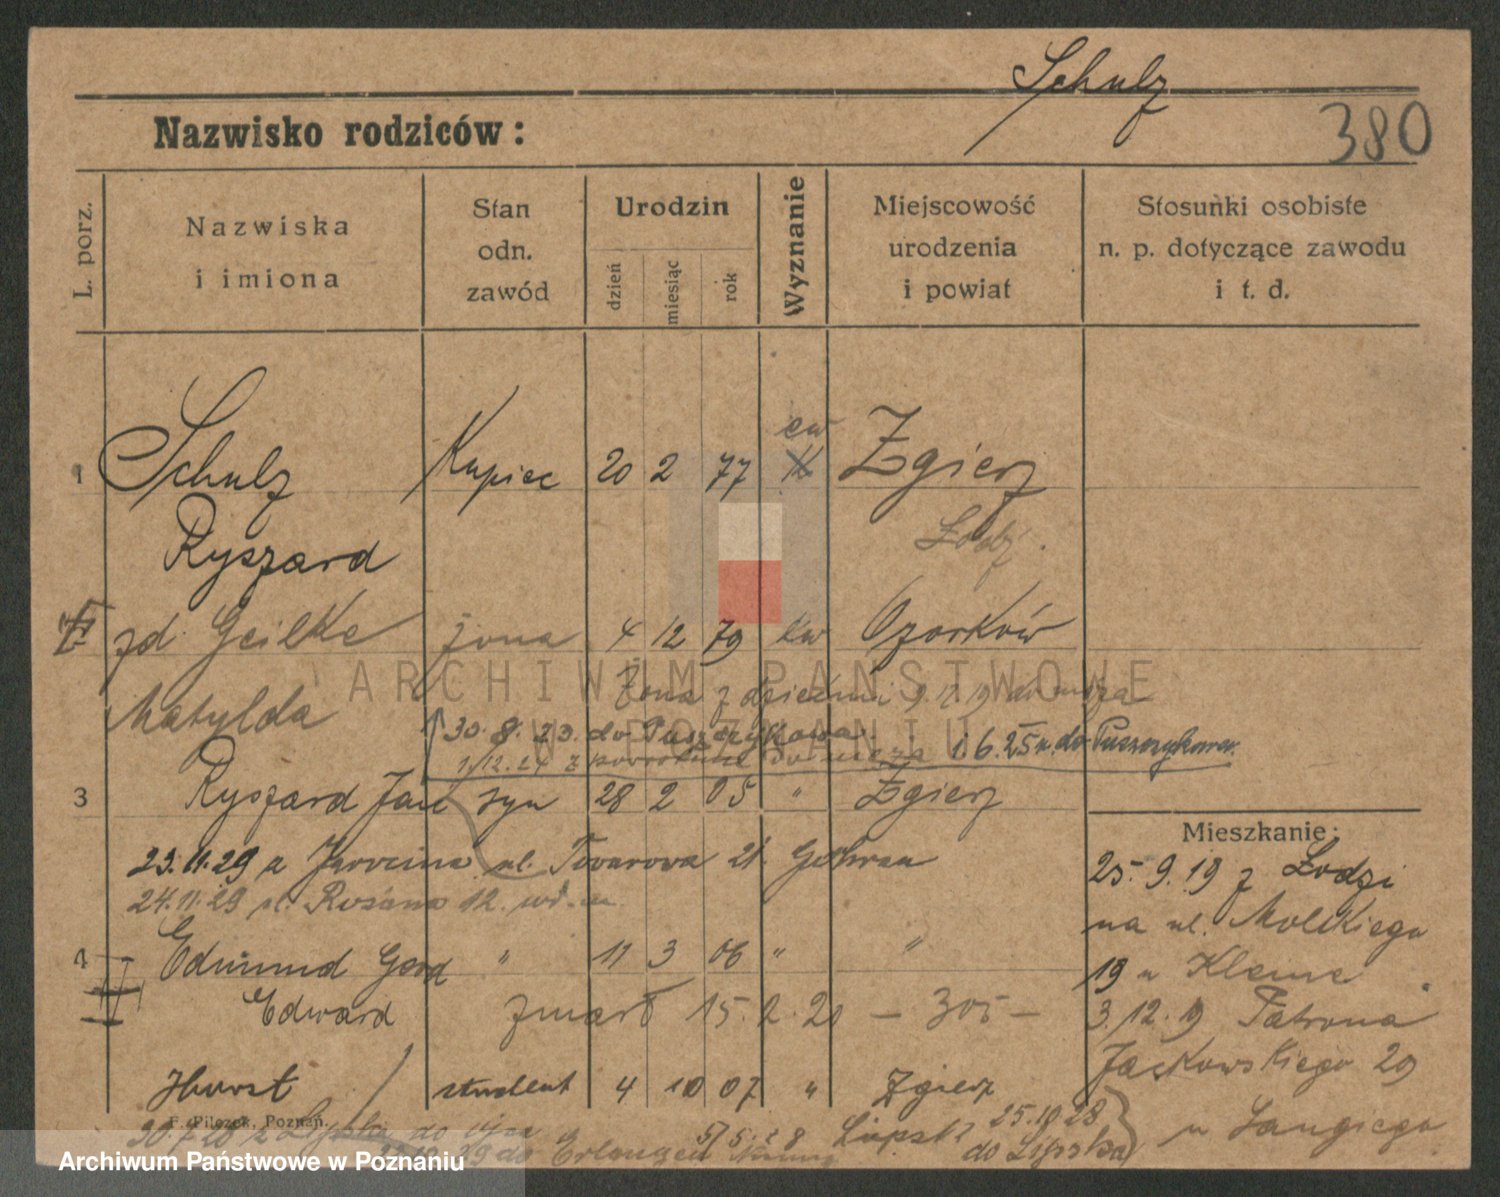 Schulz
380
Nazwisko rodziców:
L. porz.
Nazwiska
i imiona
Stan
odn.
zawód
Urodzin
dzień
miesiąc
rok
Wyznanie
Miejscowość
urodzenia
i powiat
Stosunki osobiste
n. p. dotyczące zawodu
i t. d.
ew
1 Schulz Kupiec 20 2 77 K Zgierz
Ryszard Łódź.
zd. Geilke żona 4 12 79 kw Ozorków
Matylda Żona z dziećmi 9.12.19 do męża
30. 8. 23. do Puszczykowa
1/12.24 z powrotem do męża 1.6.25 r. do Puszczykowa
3 Ryszard Jan syn 28 2 05 " Zgierz
Mieszkanie:
23.11.29 z Jarocina ul. Towarowa 21.
25.9.19 z Łodzi
24.11.29 12.
na ul. Moltkiego
4 Edmund Gerd " 11 3 06 " "
19 u Kleme
Edward zmarł 15.2.20 — 305 —
3/12.19 Patrona
Jackowskiego 29
Horst student 4 10 07 " Zgierz
F. Pilczek, Poznań.
30.7.28 z Lipska do ojca
25.10.28
do Lipska
u Langiego
do Erlangen
Lipsk
ARCHIWUM PAŃSTWOWE
W POZNANIU
Archiwum Państwowe w Poznaniu